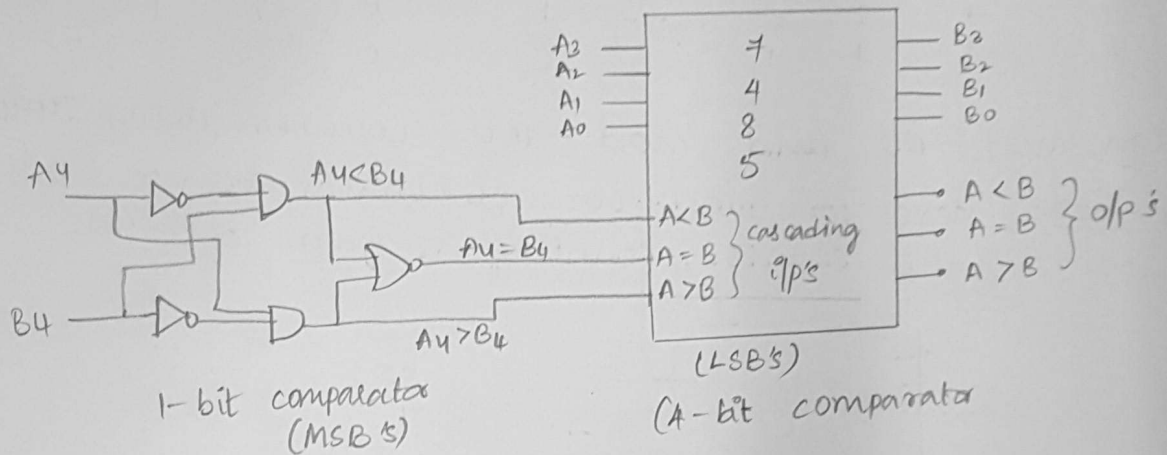 A3
A2
A1
A0
7
4
8
5
B3
B2
B1
B0
A4
B4
A4<B4
A4=B4
A4>B4
A<B
A=B
A>B
cascading
i/p's
A<B
A=B
A>B
o/p's
1-bit comparator
(MSB's)
(LSB's)
(4-bit comparator